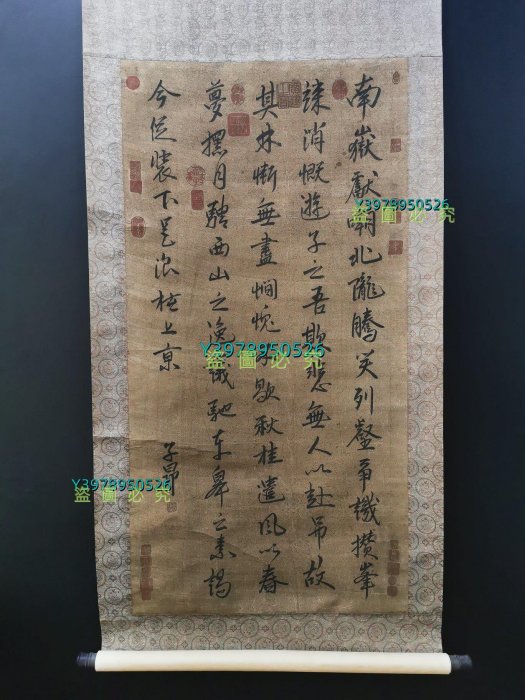 南嶽獻嘲北隴騰笑列壑爭譏攢峯
竦消慨遊子之吾欺悲無人以赴吊故
其林慚無盡澗愧不歇秋桂遣風以春
夢擺月騁西山之逸議馳東皋之素謁
今促裝下邑浪栧上京
子昂
Y3978950526
盜圖必究
Y3978950526
盜圖必究
Y3978950526
盜圖必究